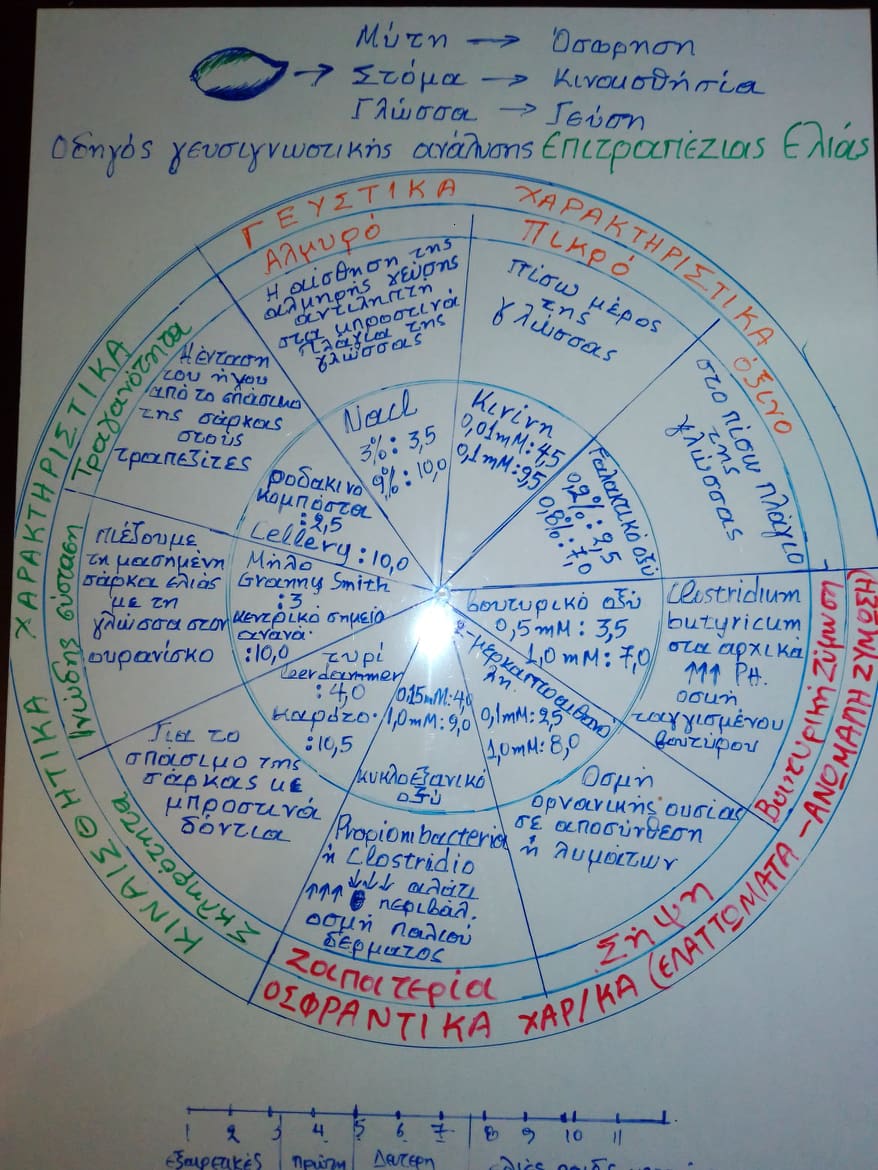 Μύτη → Όσφρηση
Στόμα → Κιναισθησία
Γλώσσα → Γεύση
Οδηγός γευσιγνωστικής ανάλυσης Επιτραπέζιας Ελιάς
ΓΕΥΣΤΙΚΑ ΧΑΡΑΚΤΗΡΙΣΤΙΚΑ
Αλμυρό
Η αίσθηση της
αλμηρής γεύσης
αντιληπτή
στα μπροστινά
πλάγια της
γλώσσας
Nacl
3%: 3,5
9%: 10,0
Πικρό
πίσω μέρος
της
γλώσσας
Κινίνη
0,01mM: 4,5
0,1mM: 9,5
όξινο
στο πίσω πλάγιο
της
γλώσσας
Γαλακτικό οξύ
0,2%: 2,5
0,8%: 7,0
ΟΣΦΡΑΝΤΙΚΑ ΧΑΡ/ΚΑ (ΕΛΑΤΤΩΜΑΤΑ - ΑΝΩΜΑΛΗ ΖΥΜΩΣΗ)
Βουτυρική Ζύμωση
Clostridium
butyricum
στα αρχικά
↑↑↑ PH.
οσμή
ταγγισμένου
βουτύρου
βουτυρικό οξύ
0,5mM: 3,5
1,0mM: 7,0
Σήψη
Οσμή
οργανικής ουσίας
σε αποσύνθεση
ή λυμάτων
2-μερκαπτοαιθανό
λη.
0,1mM: 2,5
1,0mM: 8,0
Ζαπατερία
Propionibacteria
ή Clostridio
↑↑↑ ↓↓↓ αλάτι
περιβάλ.
οσμή παλιού
δέρματος
κυκλοεξανικό
οξύ
0,15mM: 4,0
1,0mM: 9,0
ΚΙΝΑΙΣΘΗΤΙΚΑ ΧΑΡΑΚΤΗΡΙΣΤΙΚΑ
Σκληρότητα
Για το
σπάσιμο της
σάρκας με
μπροστινά
δόντια
τυρί
Leerdammer
: 4,0
καρότο
:10,5
Ινώδης σύσταση
πιέζουμε
τη μασημένη
σάρκα ελιάς
με τη
γλώσσα στον
ουρανίσκο
Μήλο
Granny Smith
:3
κεντρικό σημείο
ανανά
:10,0
Τραγανότητα
Η ένταση
του ήχου
από το σπάσιμο
της σάρκας
στους
τραπεζίτες
ροδάκινο
κομπόστα
:2,5
Cellery: 10,0
1 2 3 4 5 6 7 8 9 10 11
εξαιρετικές πρώτη Δευτερη